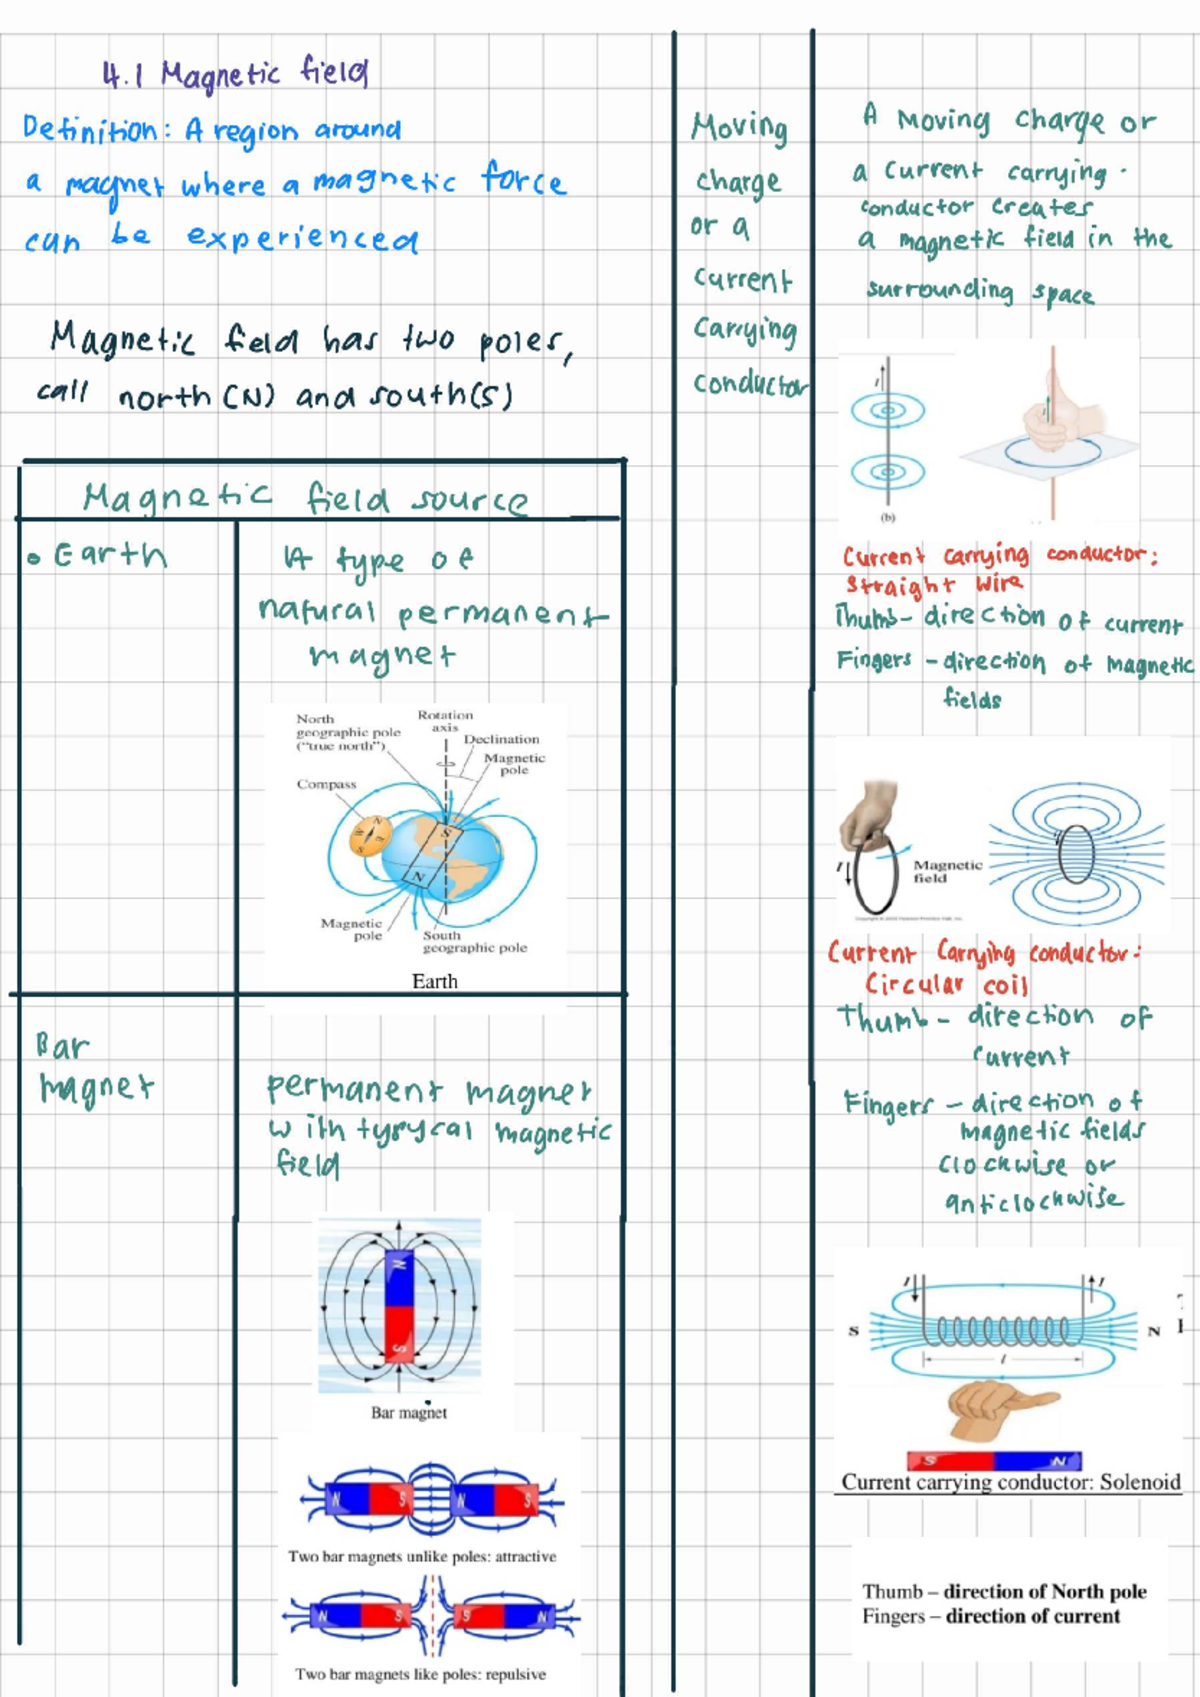 4.1 Magnetic field
Definition: A region around
a magnet where a magnetic force
can be experienced
Magnetic field has two poles,
call north (N) and south(s)
Magnetic field source
• Earth
A type of
natural permanent
magnet
North
geographic pole
("true north")
Rotation
axis
Declination
Magnetic
pole
Compass
N
W
E
S
S
N
Magnetic
pole
South
geographic pole
Earth
Bar
Magnet
permanent magnet
with typycal magnetic
field
N
S
Bar magnet
N S N S
Two bar magnets unlike poles: attractive
N S S N
Two bar magnets like poles: repulsive
Moving
charge
or a
current
Carrying
conductor
A Moving charge or
a current carrying
conductor creates
a magnetic field in the
surrounding space
I
(b)
Current carrying conductor:
Straight wire
Thumb- direction of current
Fingers - direction of magnetic
fields
I
Magnetic
field
Current Carrying conductor:
Circular coil
Thumb - direction of
current
Fingers - direction of
magnetic fields
clockwise or
anticlockwise
I
I
S
N
l
S N
Current carrying conductor: Solenoid
Thumb – direction of North pole
Fingers – direction of current